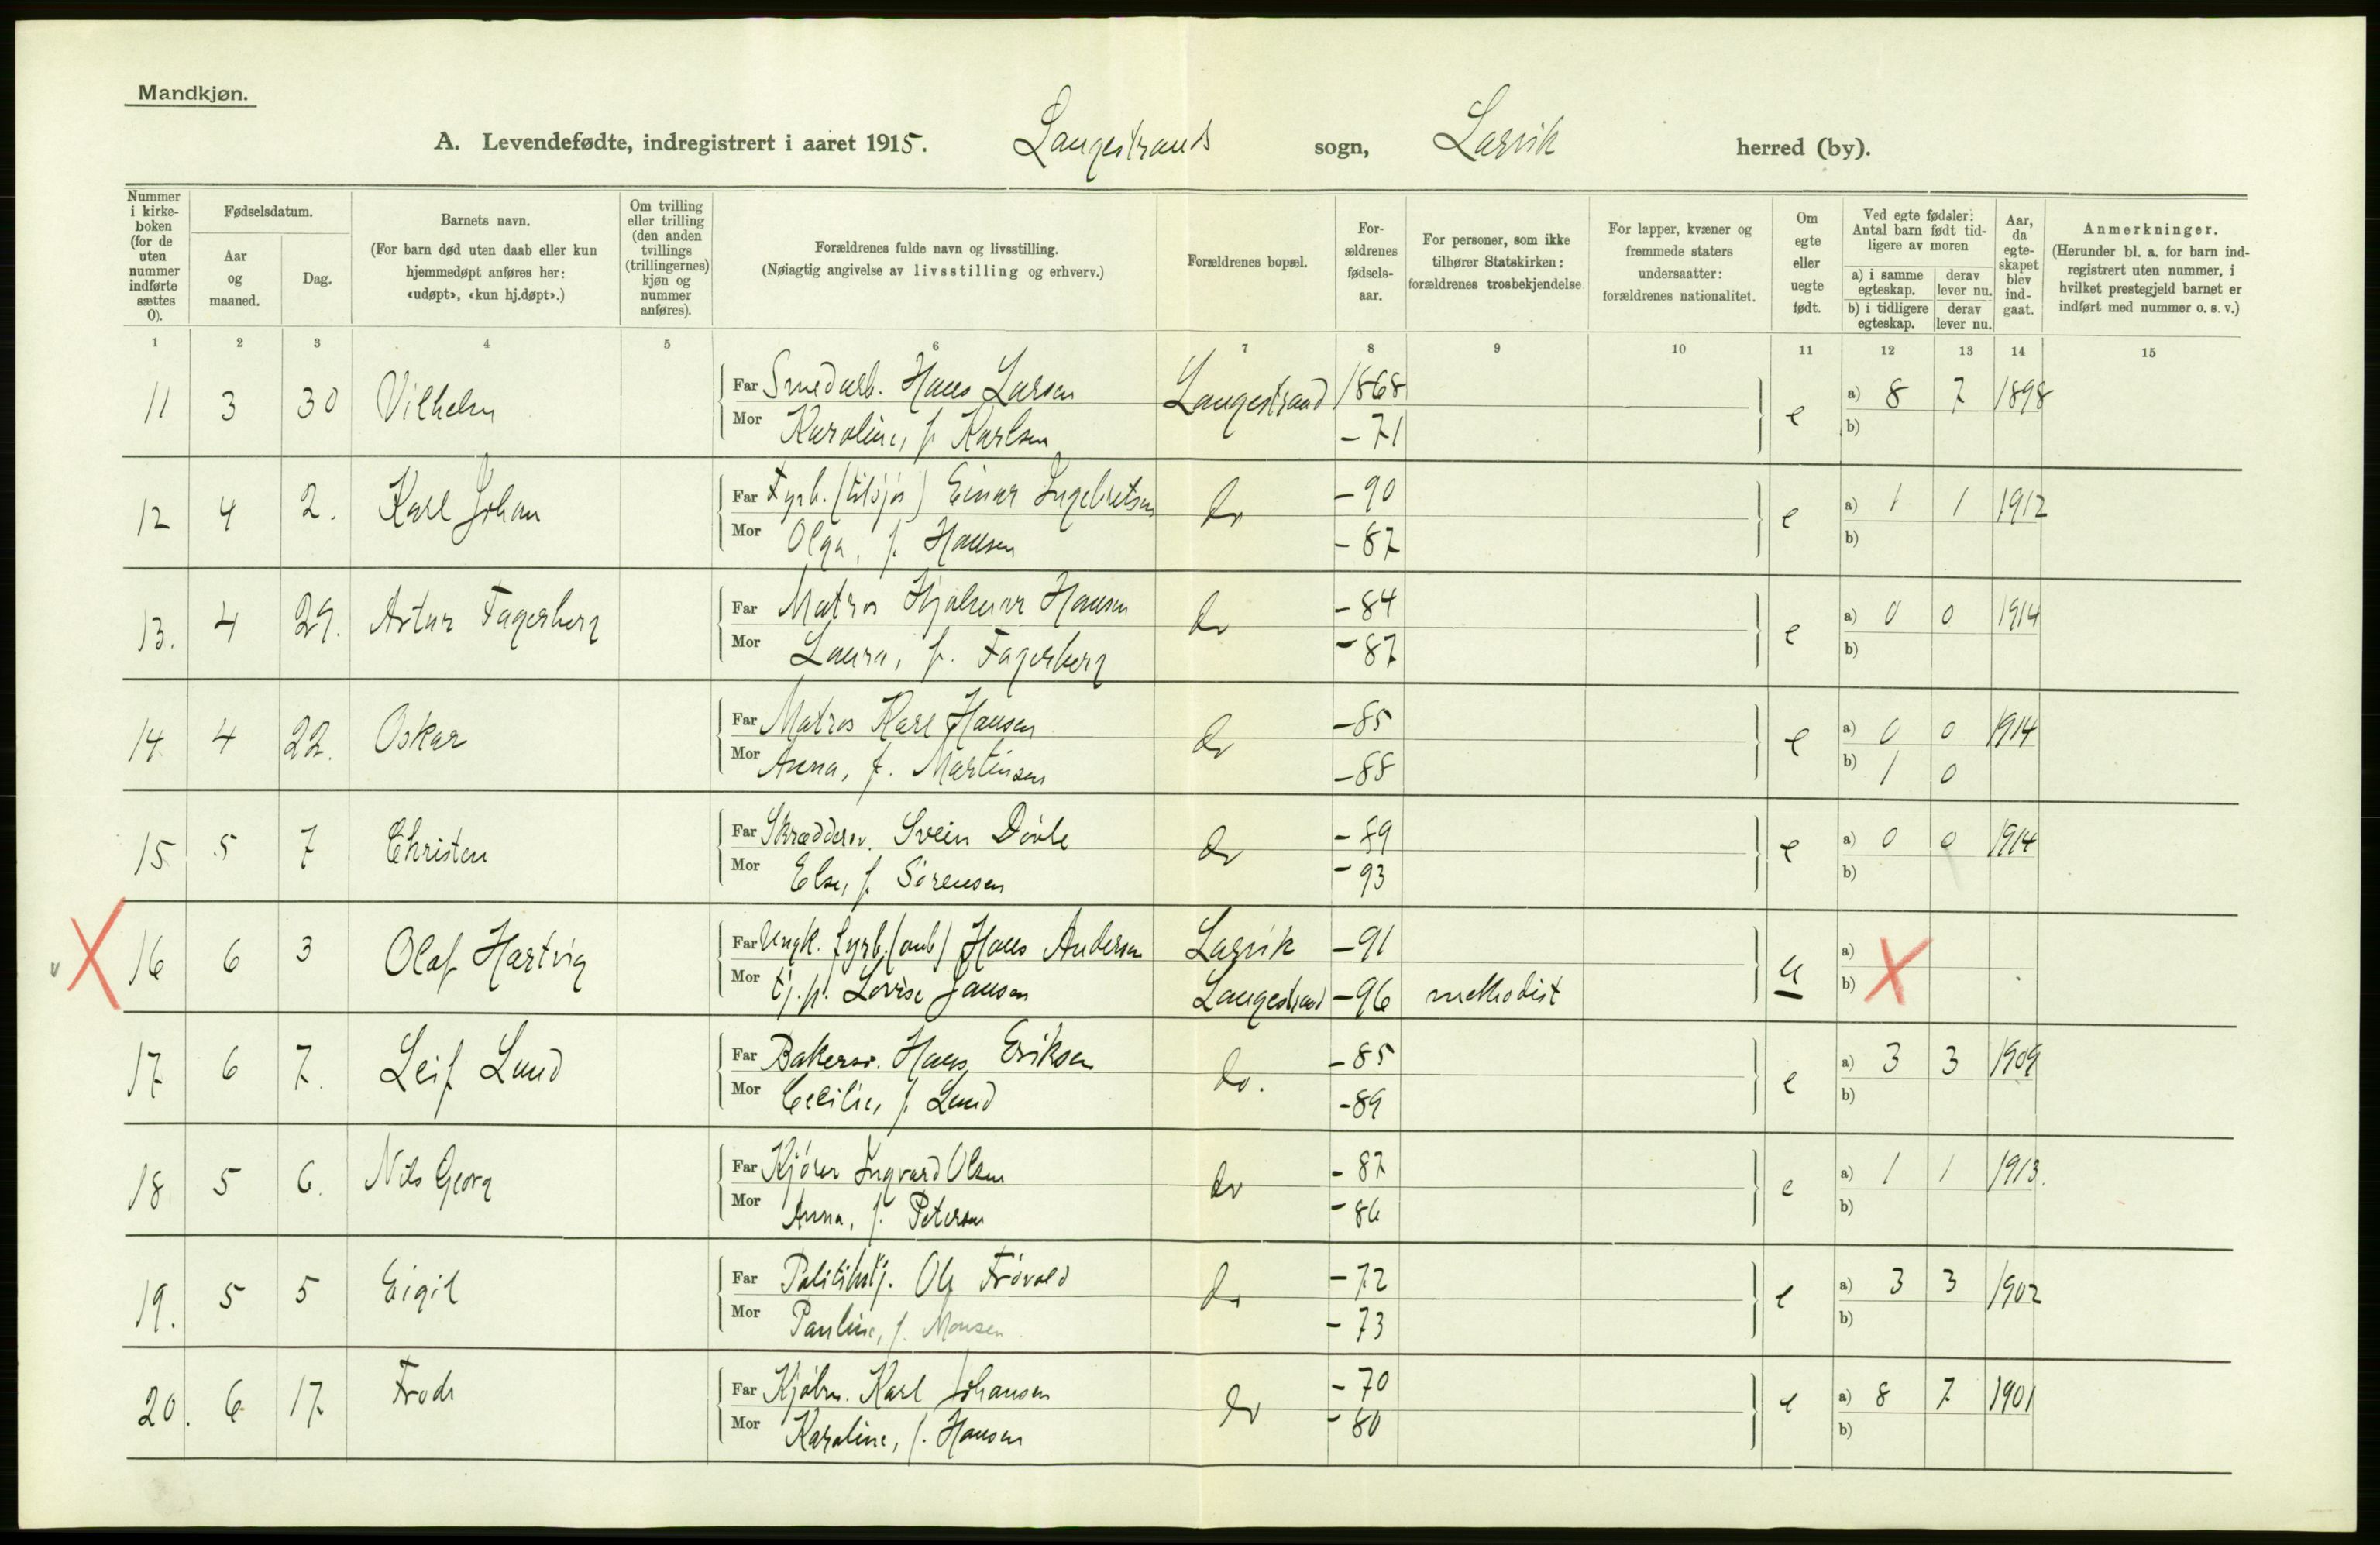 Mandkjøn.
A. Levendefødte, indregistrert i aaret 1915. Langestrands sogn, Larvik herred (by).
Nummer i kirkeboken (for de uten nummer indførte sættes 0).
Fødselsdatum.
Aar og maaned.
Dag.
Barnets navn.
(For barn død uten daab eller kun hjemmedøpt anføres her: «udøpt», «kun hj.døpt».)
Om tvilling eller trilling (den anden tvillings (trillingernes) kjøn og nummer anføres).
Forældrenes fulde navn og livsstilling.
(Nøiagtig angivelse av livsstilling og erhverv.)
Forældrenes bopæl.
Forældrenes fødselsaar.
For personer, som ikke tilhører Statskirken: forældrenes trosbekjendelse
For lapper, kvæner og fremmede staters undersaatter: forældrenes nationalitet.
Om egte eller uegte født.
Ved egte fødsler: Antal barn født tidligere av moren
a) i samme egteskap. derav lever nu.
b) i tidligere egteskap. derav lever nu.
Aar, da egteskapet blev indgaat.
Anmerkninger.
(Herunder bl. a. for barn indregistrert uten nummer, i hvilket prestegjeld barnet er indført med nummer o. s. v.)
1 2 3 4 5 6 7 8 9 10 11 12 13 14 15
11 3 30 Vilhelm Far Smedarb. Hans Larsen Langestrand 1868 e a) 8 7 1898
Mor Karoline, f. Karlsen -71 b)
12 4 2. Karl Johan Far Fyrb. (tilsjøs) Einar Ingebretsen do -90 e a) 1 1 1912
Mor Olga, f. Hansen -87 b)
13. 4 29. Artur Fagerberg Far Matros Hjalmar Hansen do -84 e a) 0 0 1914
Mor Laura, f. Fagerberg -87 b)
14 4 22. Oskar Far Matros Karl Hansen do -85 e a) 0 0 1914
Mor Anna, f. Martinsen -88 b) 1 0
15 5 7 Christen Far Skræddersv. Svein Dövle do -89 e a) 0 0 1914
Mor Else, f. Sörensen -93 b)
X 16 6 3 Olaf Hartvig Far Ungk. fyrb. Hans Andersen Larvik -91 u a) X
Mor tj.p. Lovise Jansen Langestrand -96 methodist b)
17 6 7. Leif Lund Far Bakersv. Hans Eriksen do. -85 e a) 3 3 1909
Mor Cecilie, f. Lund -89 b)
18 5 6. Nils Georg Far Kjörer Ingvard Olsen do -87 e a) 1 1 1913.
Mor Anna, f. Petersen -86 b)
19. 5 5 Eigil Far Politibetj. Ole Frövold do -72 e a) 3 3 1902
Mor Pauline, f. Monsen -73 b)
20. 6 17 Frode Far Karl Johansen do -70 e a) 8 7 1901
Mor Karoline, f. Hansen -80 b)